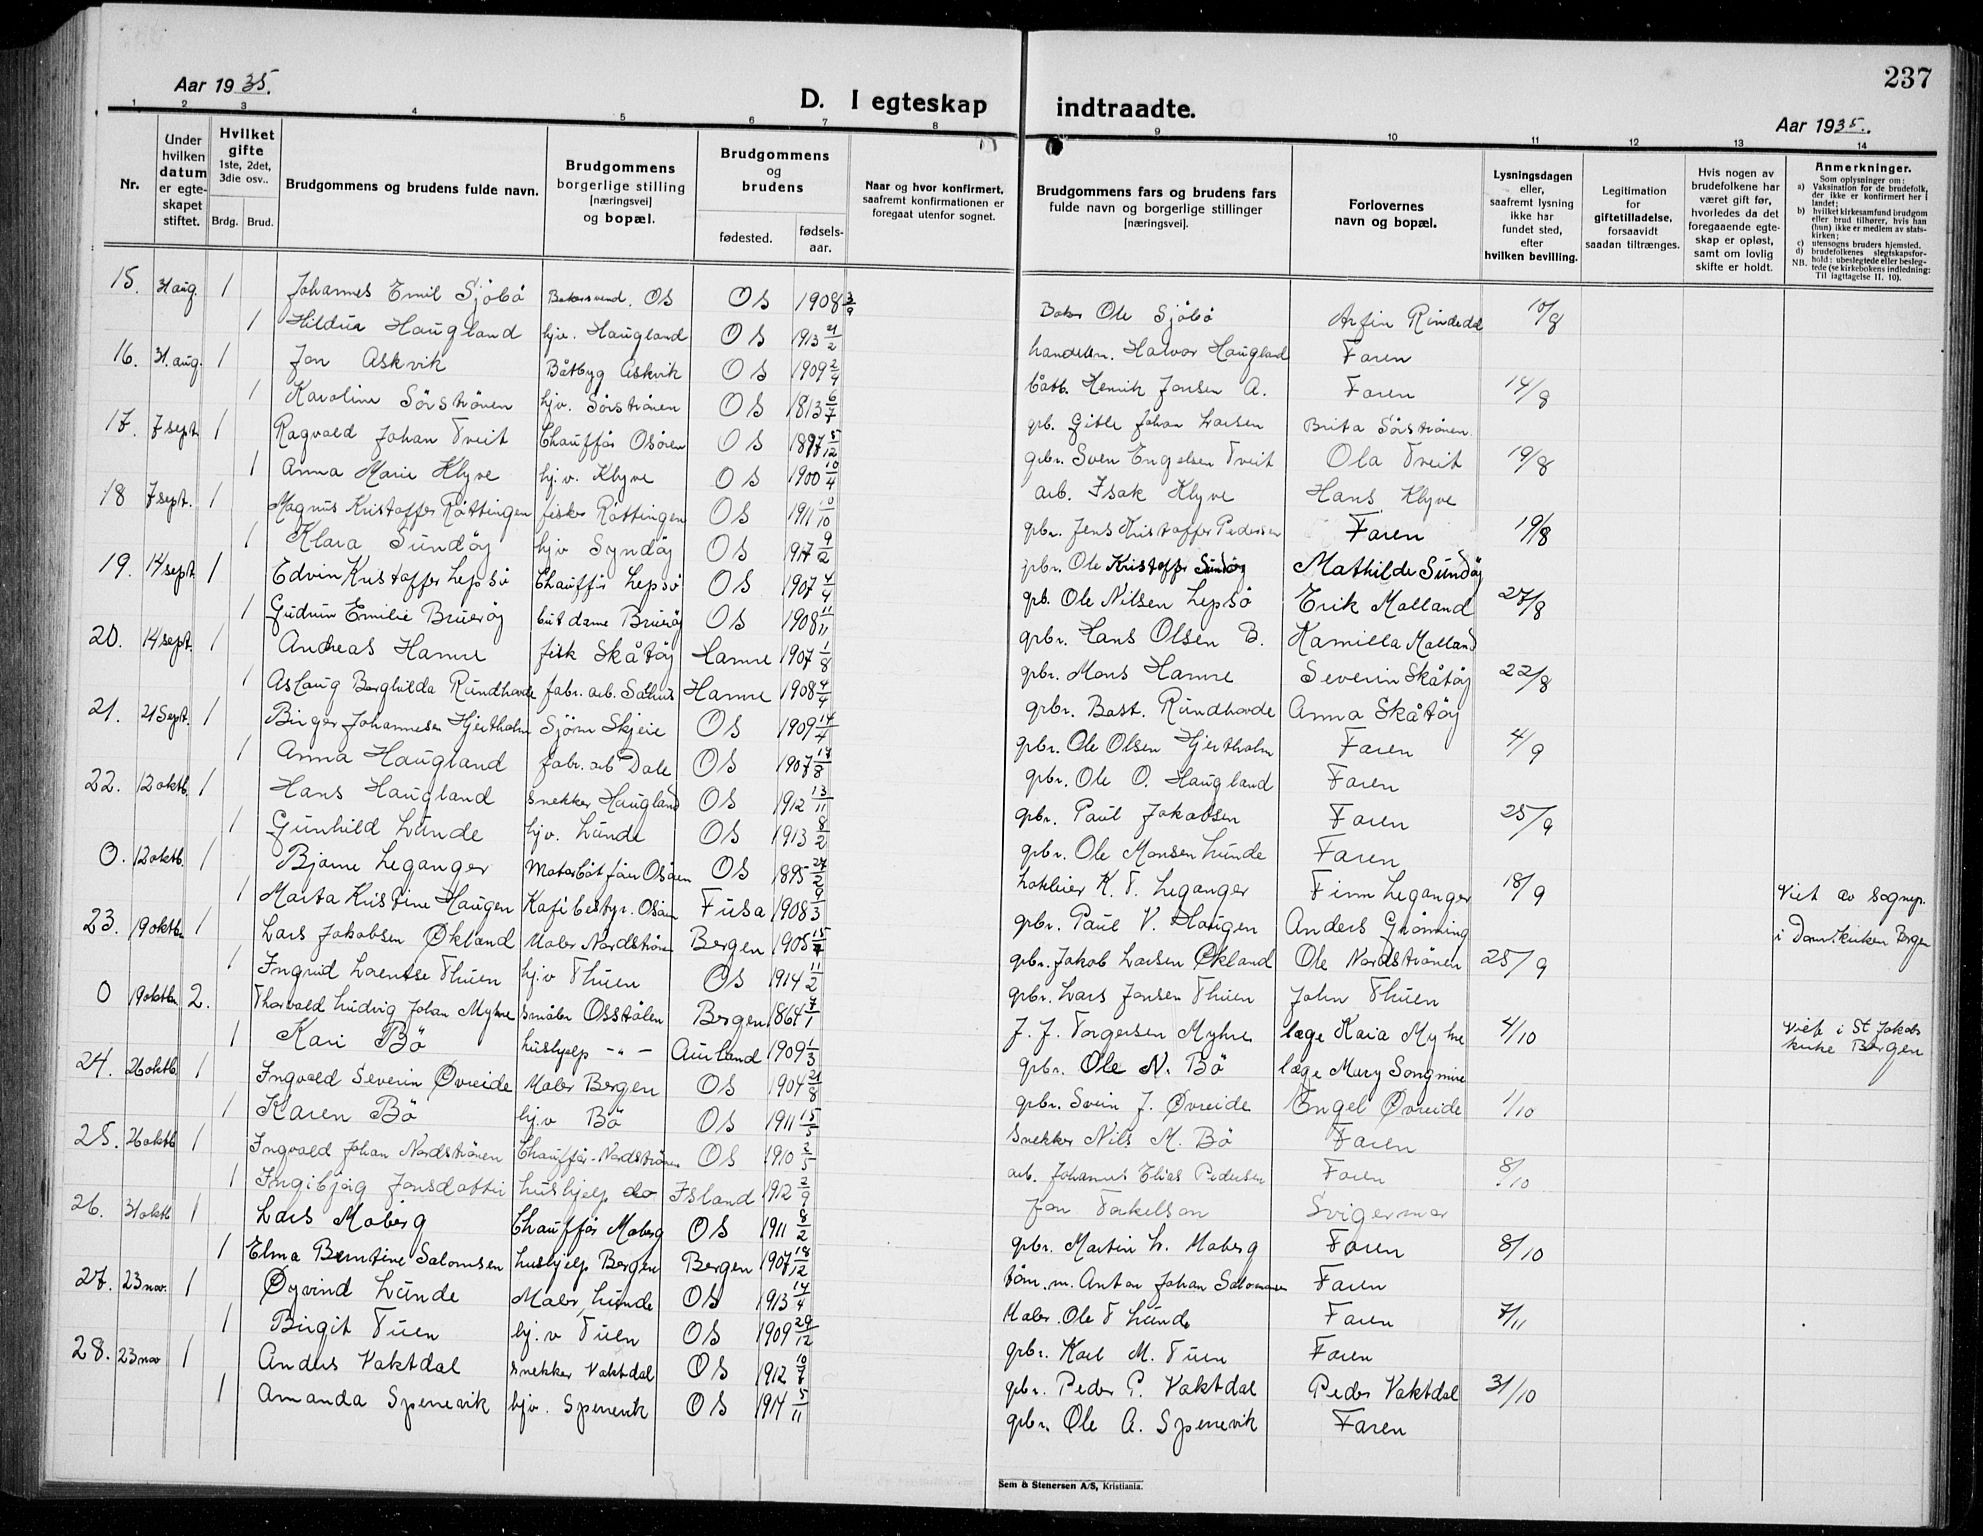 237
Aar 1935.
D. I egteskap indtraadte.
Aar 1935.
1 2 3 4 5 6 7 8 9 10 11 12 13 14
Nr.
Under hvilken datum er egteskapet stiftet.
Hvilket gifte 1ste, 2det, 3die osv..
Brdg. Brud.
Brudgommens og brudens fulde navn.
Brudgommens borgerlige stilling [næringsvei] og bopæl.
Brudgommens og brudens
fødested. fødselsaar.
Naar og hvor konfirmert, saafremt konfirmationen er foregaat utenfor sognet.
Brudgommens fars og brudens fars fulde navn og borgerlige stillinger [næringsvei].
Forlovernes navn og bopæl.
Lysningsdagen eller, saafremt lysning ikke har fundet sted, efter hvilken bevilling.
Legitimation for giftetilladelse, forsaavidt saadan tiltrænges.
Hvis nogen av brudefolkene har været gift før, hvorledes da det foregaaende egteskap er opløst, samt om lovlig skifte er holdt.
Anmerkninger.
Som oplysninger om:
a) Vaksination for de brudefolk, der ikke er konfirmert her i landet;
b) hvilket kirkesamfund brudgom eller brud tilhører, hvis han (hun) ikke er medlem av statskirken;
c) utensogns bruders hjemsted.
d) brudefolkenes slegtskapsforhold: ubeslegtede eller beslegtede (se kirkebokens indledning: Til Iagttagelse II. 10).
NB.
15. 31 aug. 1 Johannes Emil Sjöbö Bakersvend. Os Os 1908 3/9 Baker Ole Sjöbö Arfin Rindedal 10/8
1 Hildur Haugland hjv. Haugland Os 1913 21/2 handelsm. Halvor Haugland Faren
16. 31. aug. 1 Jon Askvik Båtbyg Askvik Os 1909 2/4 båtb. Henrik Jonsen A. Faren 14/8
1 Karoline Sörströnen hjv. Sörströnen Os 1813 6/7 grb. Gitle Johan Larsen Brita Sörströnen.
17. 7 sept. 1 Ragvald Johan Tveit Chaufför Osören Os 1897 5/12 gbr. Sven Engelsen Tveit Ola Tveit 19/8
1 Anna Marie Klyve hj.v. Klyve Os 1900 10/4 arb. Isak Klyve Hans Klyve
18 7 sept. 1 Magnus Kristoffer Röttingen fisker Röttingen Os 1911 /10 gbr. Jens Kristoffer Pedersen Faren 19/8
1 Klara Sundöy hjv Syndöy Os 1917 9/2 gbr. Ole Kristoffer Sundöy Mathilde Sundöy
19. 14 sept. 1 Edvin Kristoffer Lepsö Chaufför Lepsö Os 1907 4/4 gb. Ole Nilsen Lepsö Erik Malland 27/8
1 Gudrun Emilie Bruaröy but dame Bruaröy Os 1908 11/11 gbr. Hans Olsen B. Kamilla Malland
20. 14 sept. 1 Andreas Hamre fisk Skåtöy Hamre 1907 1/8 gbr. Mons Hamre Severin Skåtöy 22/8
1 Aslaug Borghilda Rundhovde fabr. arb. Salhus Hamre 1908 4/4 gbr. Bast. Rundhovde Anna Skåtöy
21. 21 Sept. 1 Birger Johannesen Hjertholm Sjörm Skjeie Os 1909 14/4 gbr. Ole Olsen Hjertholm Faren 4/9
1 Anna Haugland fabr. arb Dale Os 1907 18/8 gbr. Ole O. Haugland Faren
22. 12 oktb. 1 Hans Haugland snekker Haugland Os 1912 13/11 gbr. Paul Jakobsen Faren 25/9
1 Gunhild Lunde hjv. Lunde Os 1913 8/2 gbr. Ole Monsen Lunde Faren
0. 12 oktb. 1 Bjarne Leganger Motorbåtförer Osören Os 1895 27/2 K. T. Leganger Finn Leganger 18/9 Viet av sognep.
1 Marta Kristine Haugen Kafébestyr. Osören Fusa 1908 9/3 gbr. Paul V. Haugen Anders Grönning i Domkirken Bergen
23. 19 oktbr 1 Lars Jakobsen Økland Maler Nordströnen Bergen 1905 15/ gbr. Jakob Larsen Økland Ole Nordströnen 25/9
1 Ingrid Laentse Thuen hjv Thuen Os 1914 11/2 gbr. Lars Jonsen Thuen John Thuen
0 19 oktbr. 2. Thorvald Ludvig Johan Myhre småbr Osstölen Bergen 1864 7/1 J. J. Torgersen Myhre læge Karia Myhre 4/10 Viet i St Jakobs
1 Kari Bö hushjelp -"- Aurland 1909 1/3 gbr. Ole N. Bö læge Mary Songmire kirke Bergen
24. 26 oktb. 1 Ingvald Severin Øvreide Maler Bergen Os 1904 21/8 gbr. Svein J. Øvreide Engel Øvreide 1/10
1 Karen Bö hj.v Bö Os 1911 15/5 Snekker Nils M. Bö Faren
25. 26 oktb 1 Ingvald Johan Nordströnen Chaufför Nordströnen Os 1910 2/5 arb. Johannes Elias Pedersen Faren 8/10
1 Ingibjörg Jonsdottir hushjelp do Island 1912 2/9 Jon Torkelson Svigermor
26. 31 oktb 1 Lars Moberg Chaufför Moberg Os 1911 8/2 gbr. Martin L. Moberg Faren 8/10
1 Elma Berntine Salomsen hushjelp Bergen Bergen 1907 18/12 töm.m. Anton Johan Salomonsen Faren
27. 23 nov. 1 Øyvind Lunde Maler, Lunde Os 1913 14/4 Maler. Ole T Lunde Faren 7/11
1 Birgit Tuen hj.v Tuen Os 1909 29/12 gbr. Karl M. Tuen Faren
28. 23 nov 1 Anders Vaktdal snekker Vaktdal Os 1912 10/7 gbr. Peder P. Vaktdal Peder Vaktdal 31/10
1 Amanda Spenevik hjv. Spenevik Os 1914 5/11 gbr. Ole A. Spenevik Faren
Sem & Stenersen A/S, Kristiania.